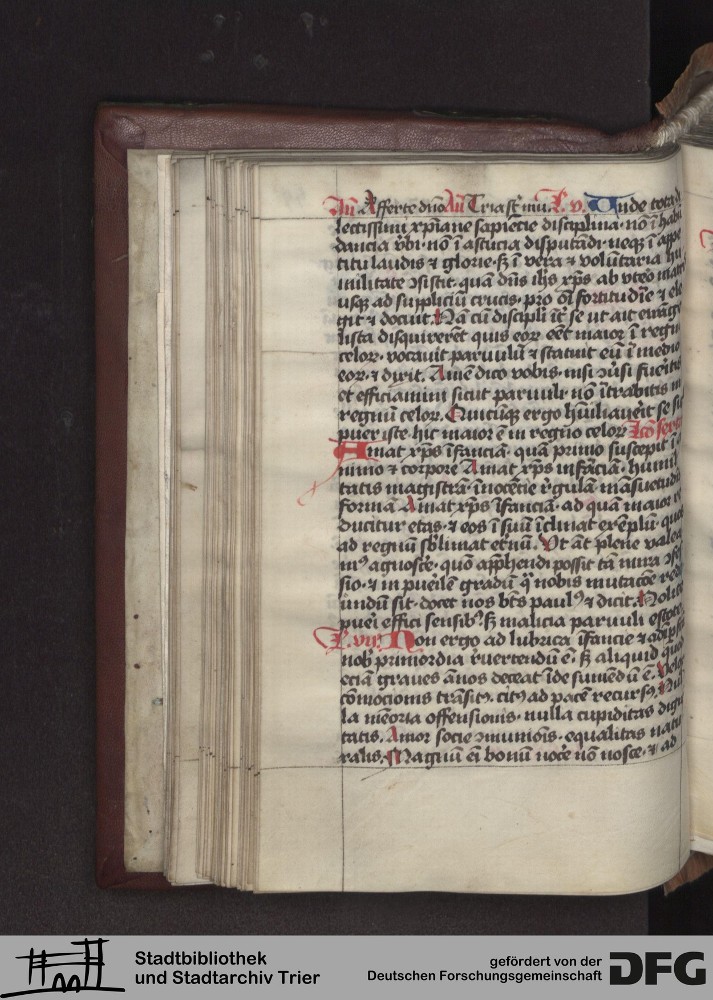 Añ Afferte dño Añ Tria st̄ mu. L. v. Unde tota di
lectissimi xp̄iane sapiētie disciplina. nō ī habū
dancia v̄bi. nō ī astucia disputādi. neqꝫ ī appe
titu laudis ⁊ glorie. sꝫ ī vera ⁊ volūtaria hu
militate ɔsistit. quā dn̄s ih̄s xp̄s ab vteo matris
usqꝫ ad suppliciū crucis. pro oī fortitudīe ⁊ ele
git ⁊ docuit. Nā cū discipl̄i īt̄ se ut ait ewāge
lista disquirerēt quis eoꝝ eēt maior ī regnū
celoꝝ. vocauit paruulū ⁊ statuit eū ī medio
eoꝝ. ⁊ dixit. Amē dico vobis. nisi ɔūsi fuerītis
et efficiamini sicut paruuli. nō ītrabitis in
regnū celoꝝ. Quicūqꝫ ergo hūiliauerit se sic
puer iste. hic maior ē in regno celoꝝ Lc̄o sexta
Amat xp̄s īfanciā. quā primo suscepit ī a
nimo ⁊ corpore Amat xp̄s infāciā. humili
tatis magistrā. īnocētie r̄gulā. māsuetudīs
formā. Amat xp̄s īfanciā. ad quā maioꝝ re
ducitur etas. ⁊ eos ī suū īclinat exēplū. quos
ad regnū sb̄limat etnū. Vt āt plene valea
mꝰ agnosc̄e. quō app̄hendi possit tā mira ɔuer
sio. ⁊ in puerilē gradū q̄ nobis mutacōe rede
undū sit. docet nos bt̄s paulꝰ ⁊ dicit. Nolite
pueri effici sensibꝰ. sꝫ malicia paruuli estote
L. vii Non ergo ad lubrica īfancie ⁊ ad īpfc̄a
nob̄ primordia r̄uertendū ē. sꝫ aliquid quod
eciā graues ānos deceat īde sumēdū ē. Velox
cōmocionis trāsitꝰ. citꝰ ad pacē recursꝰ. Nul
la mēoria offensionis. nulla cupiditas digni
tatis. Amor socie ɔmunioīs. equalitas natu
ralis. Magnū eī bonū noc̄e nō nosce. ⁊ ad
Stadtbibliothek
und Stadtarchiv Trier
gefördert von der
Deutschen Forschungsgemeinschaft
DFG